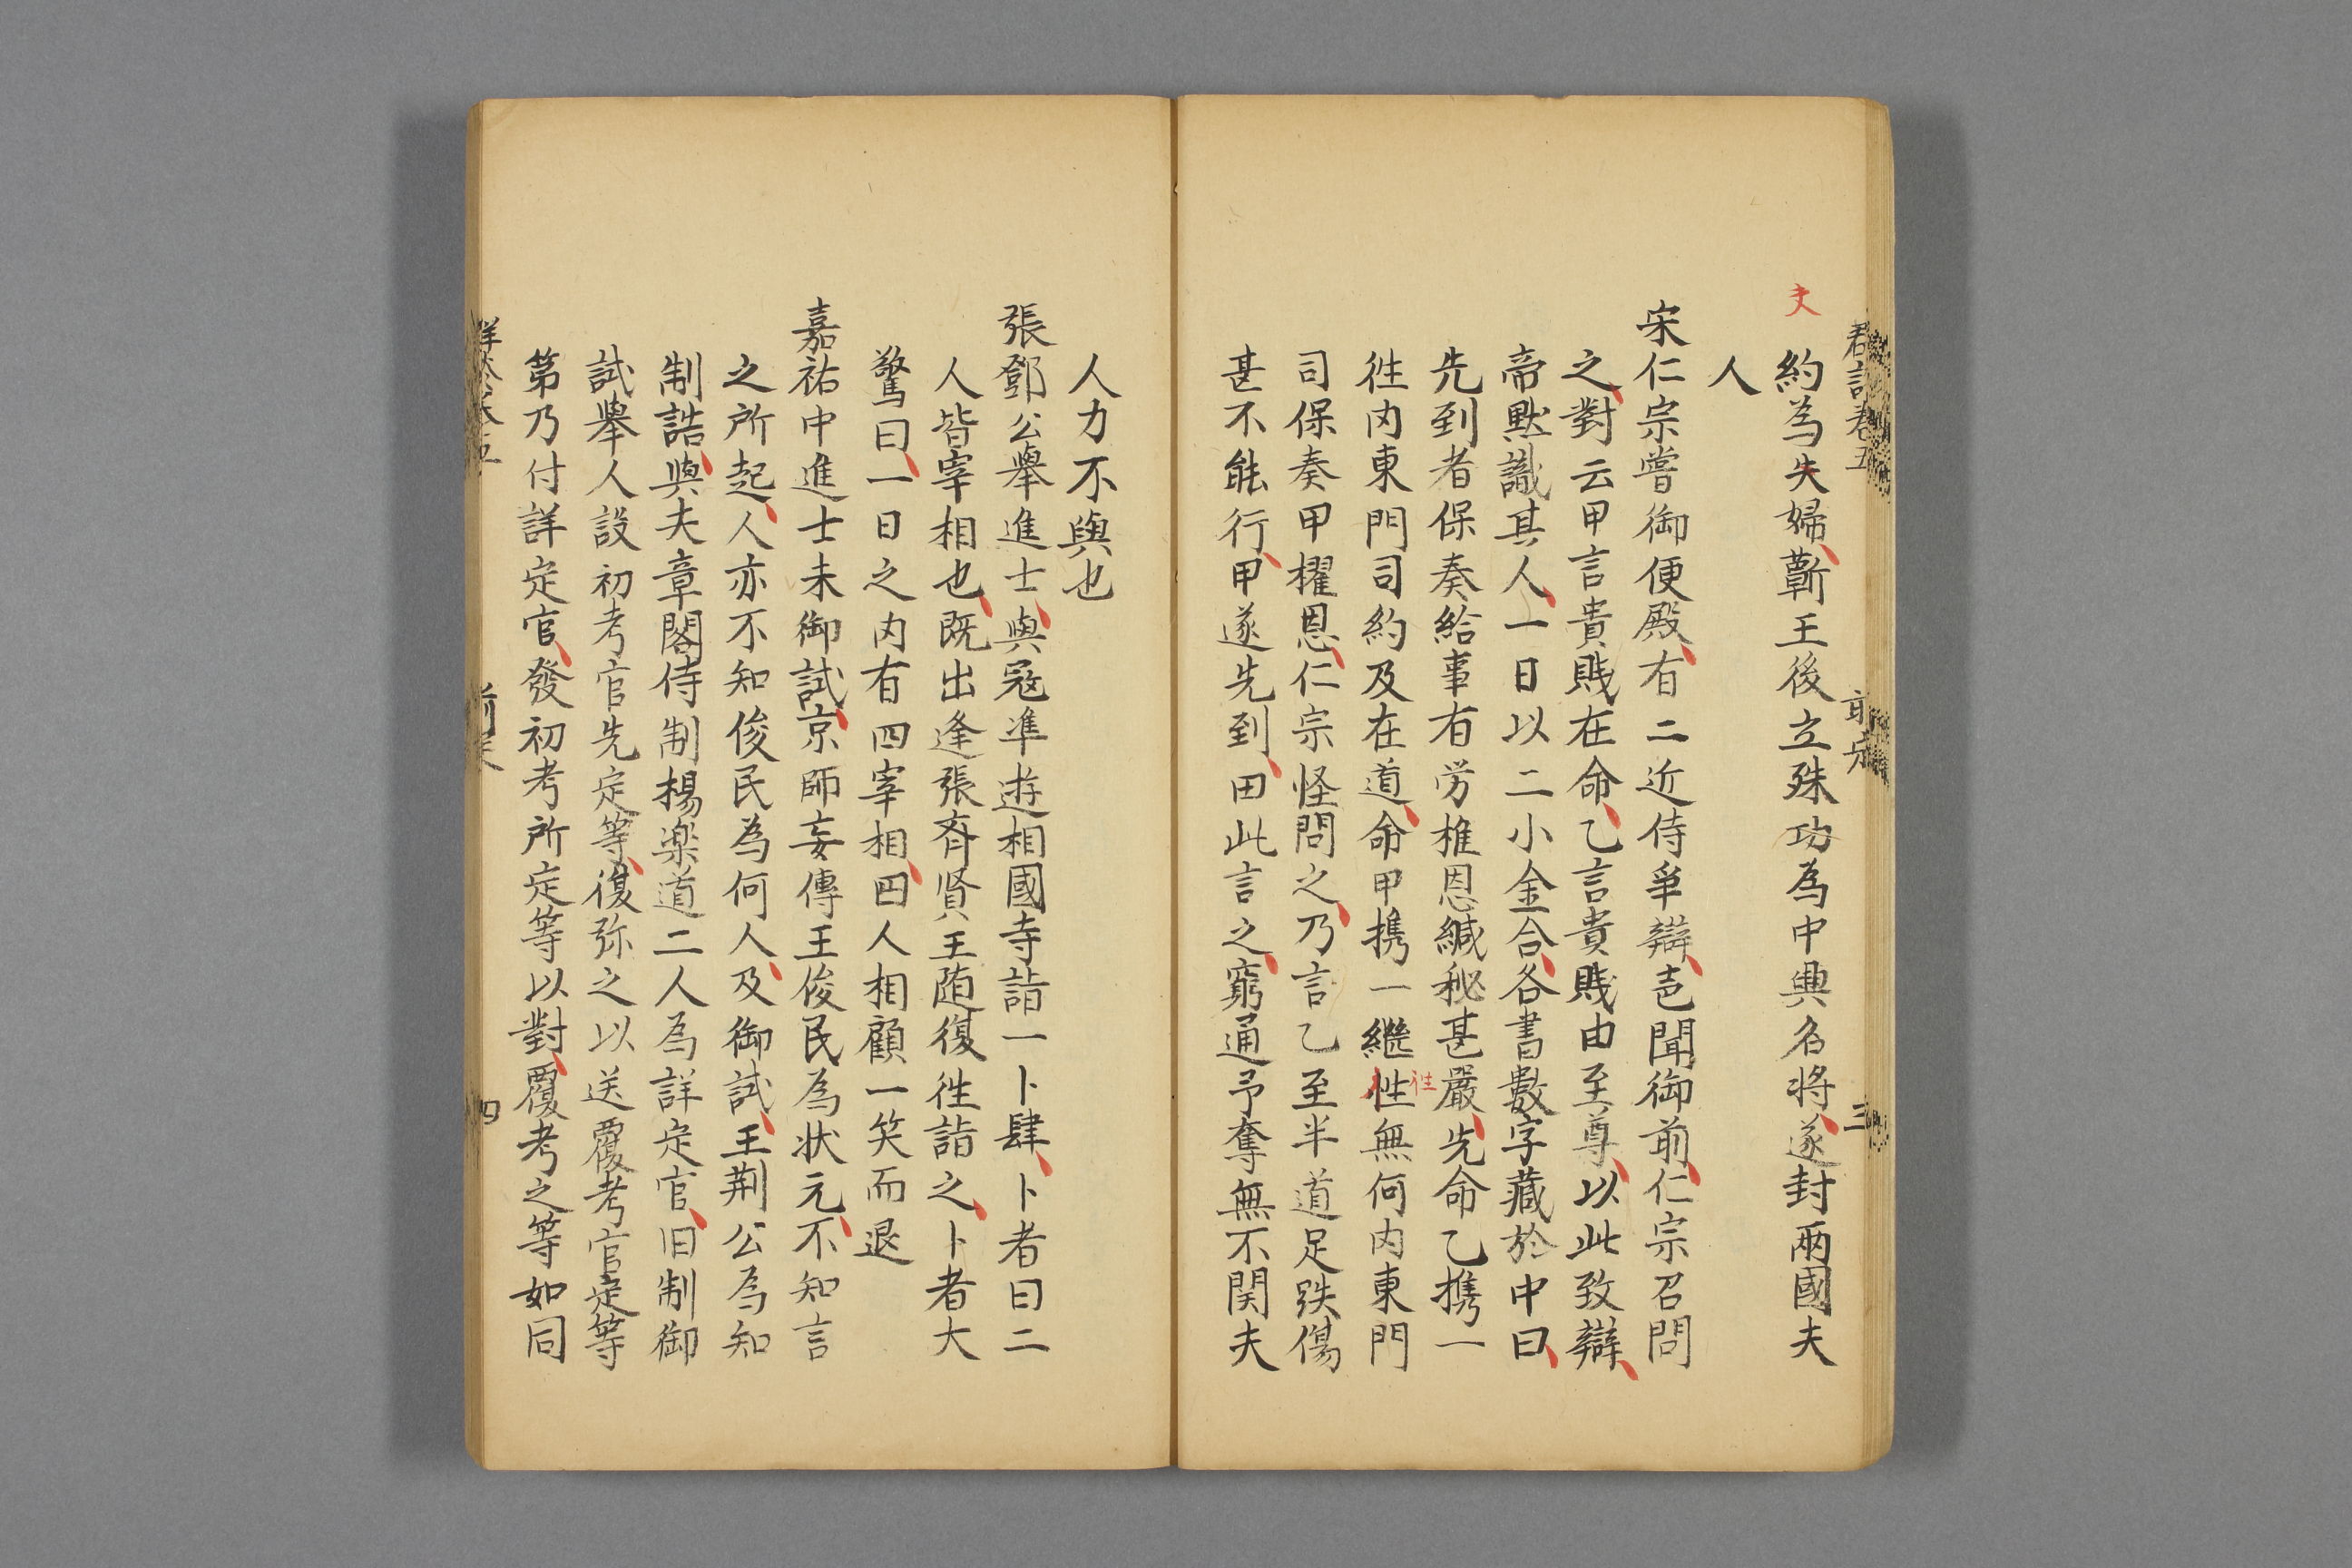 夫
約為失婦蘄王後立殊功為中興名將遂封兩國夫
人
宋仁宗嘗御便殿有二近侍爭辯声聞御前仁宗召問
之對云甲言貴賎在命乙言貴賎由至尊以此致辯
帝默識其人一日以二小金合各書數字藏於中曰
先到者保奏給事有労推恩緘秘甚嚴先命乙携一
徃内東門司約及在道命甲携一継性無何内東門
徃
司保奏甲擢恩仁宗怪問之乃言乙至半道足跌傷
甚不能行甲遂先到田此言之窮通予奪無不関夫
人力不與也
張鄧公舉進士與冦準逰相國寺詣一卜肆卜者曰二
人皆宰相也既出逢張齊賢王随復徃詣之卜者大
驚曰一日之内有四宰相四人相顧一笑而退
嘉祐中進士未御試京師妄傳王俊民為状元不知言
之所起人亦不知俊民為何人及御試王荆公為知
制誥與夫章閣侍制楊楽道二人為詳定官旧制御
試舉人設初考官先定等復弥之以送覆考官定等
第乃付詳定官發初考所定等以對覆考之等如同
四